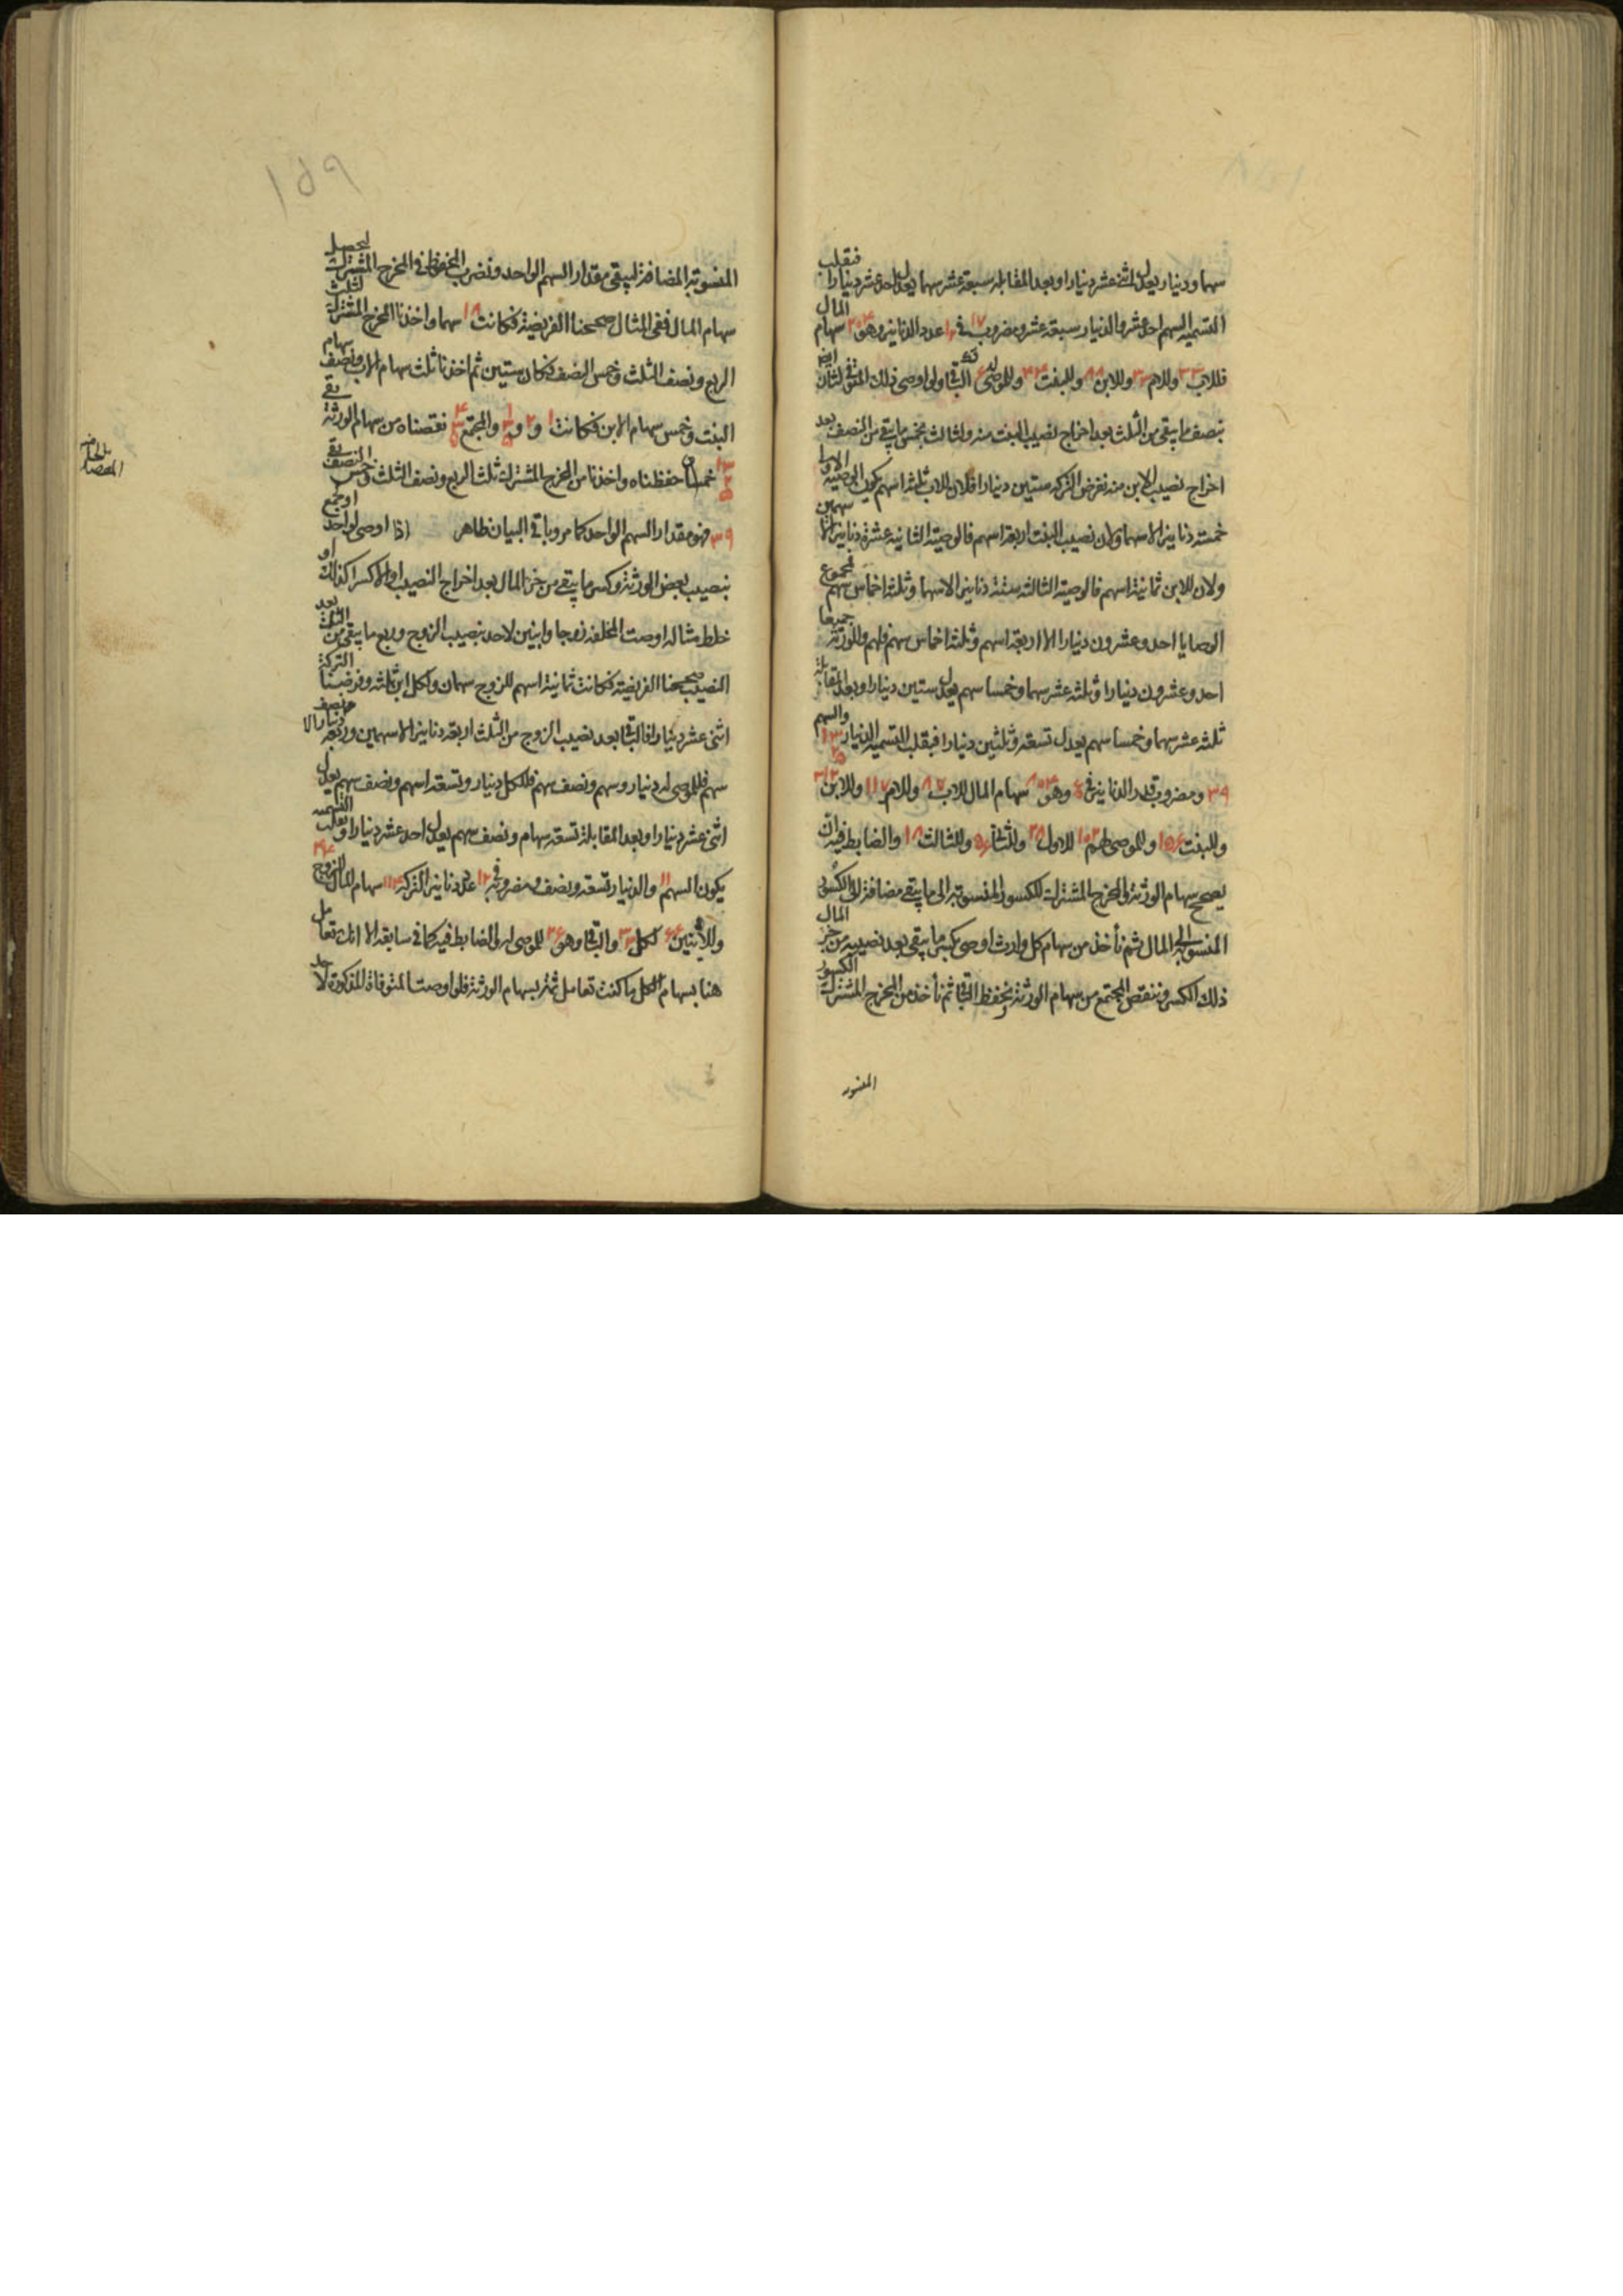 سهما ودينار يعدل اثنى عشر دينارا وبعد المقابلة سبعة عشر سهما يعدل احد عشر دينارا فنقلب
التسمية السهم احد عشر والدينار سبعة عشر ومضروب ١٧ في ١٢ عدد الدنانير وهو ٢٠٤ سهام المال
فللاب ٣٣ وللام ٣٣ وللابن ٨٨ وللبنت ٤٤ وللموصى له ٦ الباقي ولو اوصى ذلك المتوفى لثان ايضا
بنصف ما يبقى من الثلث بعد اخراج نصيب البنت منه ولثالث بخمس ما يبقى من النصف بعد
اخراج نصيب الابن منه نفرض التركة ستين دينارا فلان للاب ثلثة اسهم يكون الوصية الاولى
خمسة دنانير الا سهما ولان نصيب البنت اربعة اسهم فالوصية الثانية عشرة دنانير الا سهمين
ولان للابن ثمانية اسهم فالوصية الثالثة ستة دنانير الا سهما وثلثة اخماس سهم فمجموع
الوصايا احد وعشرون دينارا الا اربعة اسهم وثلثة اخماس سهم فلهم وللورثة جميعا
احد وعشرون دينارا وثلثة عشر سهما وخمسا سهم يعدل ستين دينارا وبعد المقابلة
ثلثة عشر سهما وخمسا سهم يعدل تسعة وثلثين دينارا فبقلب التسمية الدينار ١٣ ٢ ٥ والسهم
٣٩ ومضروب قدر الدنانير في وهو ٨٠٤ سهام المال للاب ١١٧ وللام ١١٧ وللابن ٣١٢
وللبنت ١٥٦ وللموصى لهم ١٠٢ للاول ٢٨ وللثاني ٥٦ وللثالث ١٨ والضابط فيه ان
يصحح سهام الورثة والمخرج المشترك للكسور المنسوبة الى ما يبقى مضافة الى الكسور
المنسوبة الى المال ثم نأخذ من سهام كل وارث اوصى بكسر ما يبقى بعد نصيبه من جزء المال
ذلك الكسر وننقص المجتمع من سهام الورثة ونحفظ الباقي ثم نأخذ من المخرج المشترك الكسور
المنسوبة
المنسوبة المضافة ليبقى مقدار السهم الواحد ونضرب المحفوظ في المخرج المشترك ليحصل
سهام المال ففي المثال صححنا الفريضة فكانت ١٨ سهما واخذنا المخرج المشترك لثلث
الربع ونصف الثلث وخمس النصف فكان ستين ثم اخذنا ثلث سهام الاب ونصف سهام
البنت وخمس سهام الابن فكانت ١ و ٢ و ١ ٣ ٥ والمجتمع ٤ ٣ ٥ نقصناه من سهام الورثة بقي
١٣ ٢ ٥ خمسان حفظناه واخذنا من المخرج المشترك ثلث الربع ونصف الثلث وخمس النصف بقي
٣٩ فهو مقدار السهم الواحد كما مر وباقي البيان ظاهر اذا اوصى لواحد او جمع
بنصيب بعض الورثة وكسر ما يبقى من جزء المال بعد اخراج النصيب او الا كسرا كذلك او
خلط مثاله اوصت المخلفة زوجا وابنين لاحد بنصيب الزوج وربع ما يبقى من الثلث بعد
النصيب صححنا الفريضة فكانت ثمانية اسهم للزوج سهمان ولكل ابن ثلثة وفرضنا التركة
اثنى عشر دينارا فالباقي بعد نصيب الزوج من الثلث اربعة دنانير الا سهمين وربعه دينار الا نصف
سهم فللموصى له دينار وسهم ونصف سهم فللكل دينار وتسعة اسهم ونصف سهم يعدل
اثنى عشر دينارا وبعد المقابلة تسعة سهام ونصف سهم يعدل احد عشر دينارا وبقلب التسمية
يكون السهم ١١ والدينار تسعة ونصف ومضروبه في ١٢ عدد دنانير التركة ١١٤ سهام المال للزوج ٢٢
وللابنين ٦٦ لكل ٣٣ والباقي وهو ٢٦ للموصى له والضابط فيه كما في سابقه الا انك تعامل
هنا بسهام الكل ما كنت تعامل ثمة بسهام الورثة فلو اوصت المتوفاة المذكورة لاحد
١٥٩